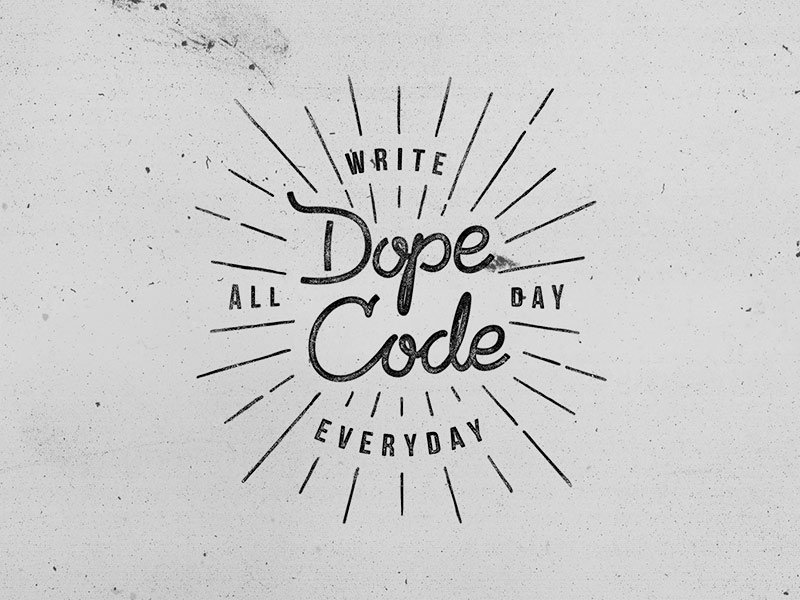 WRITE
Dope
ALL
DAY
Code
EVERYDAY